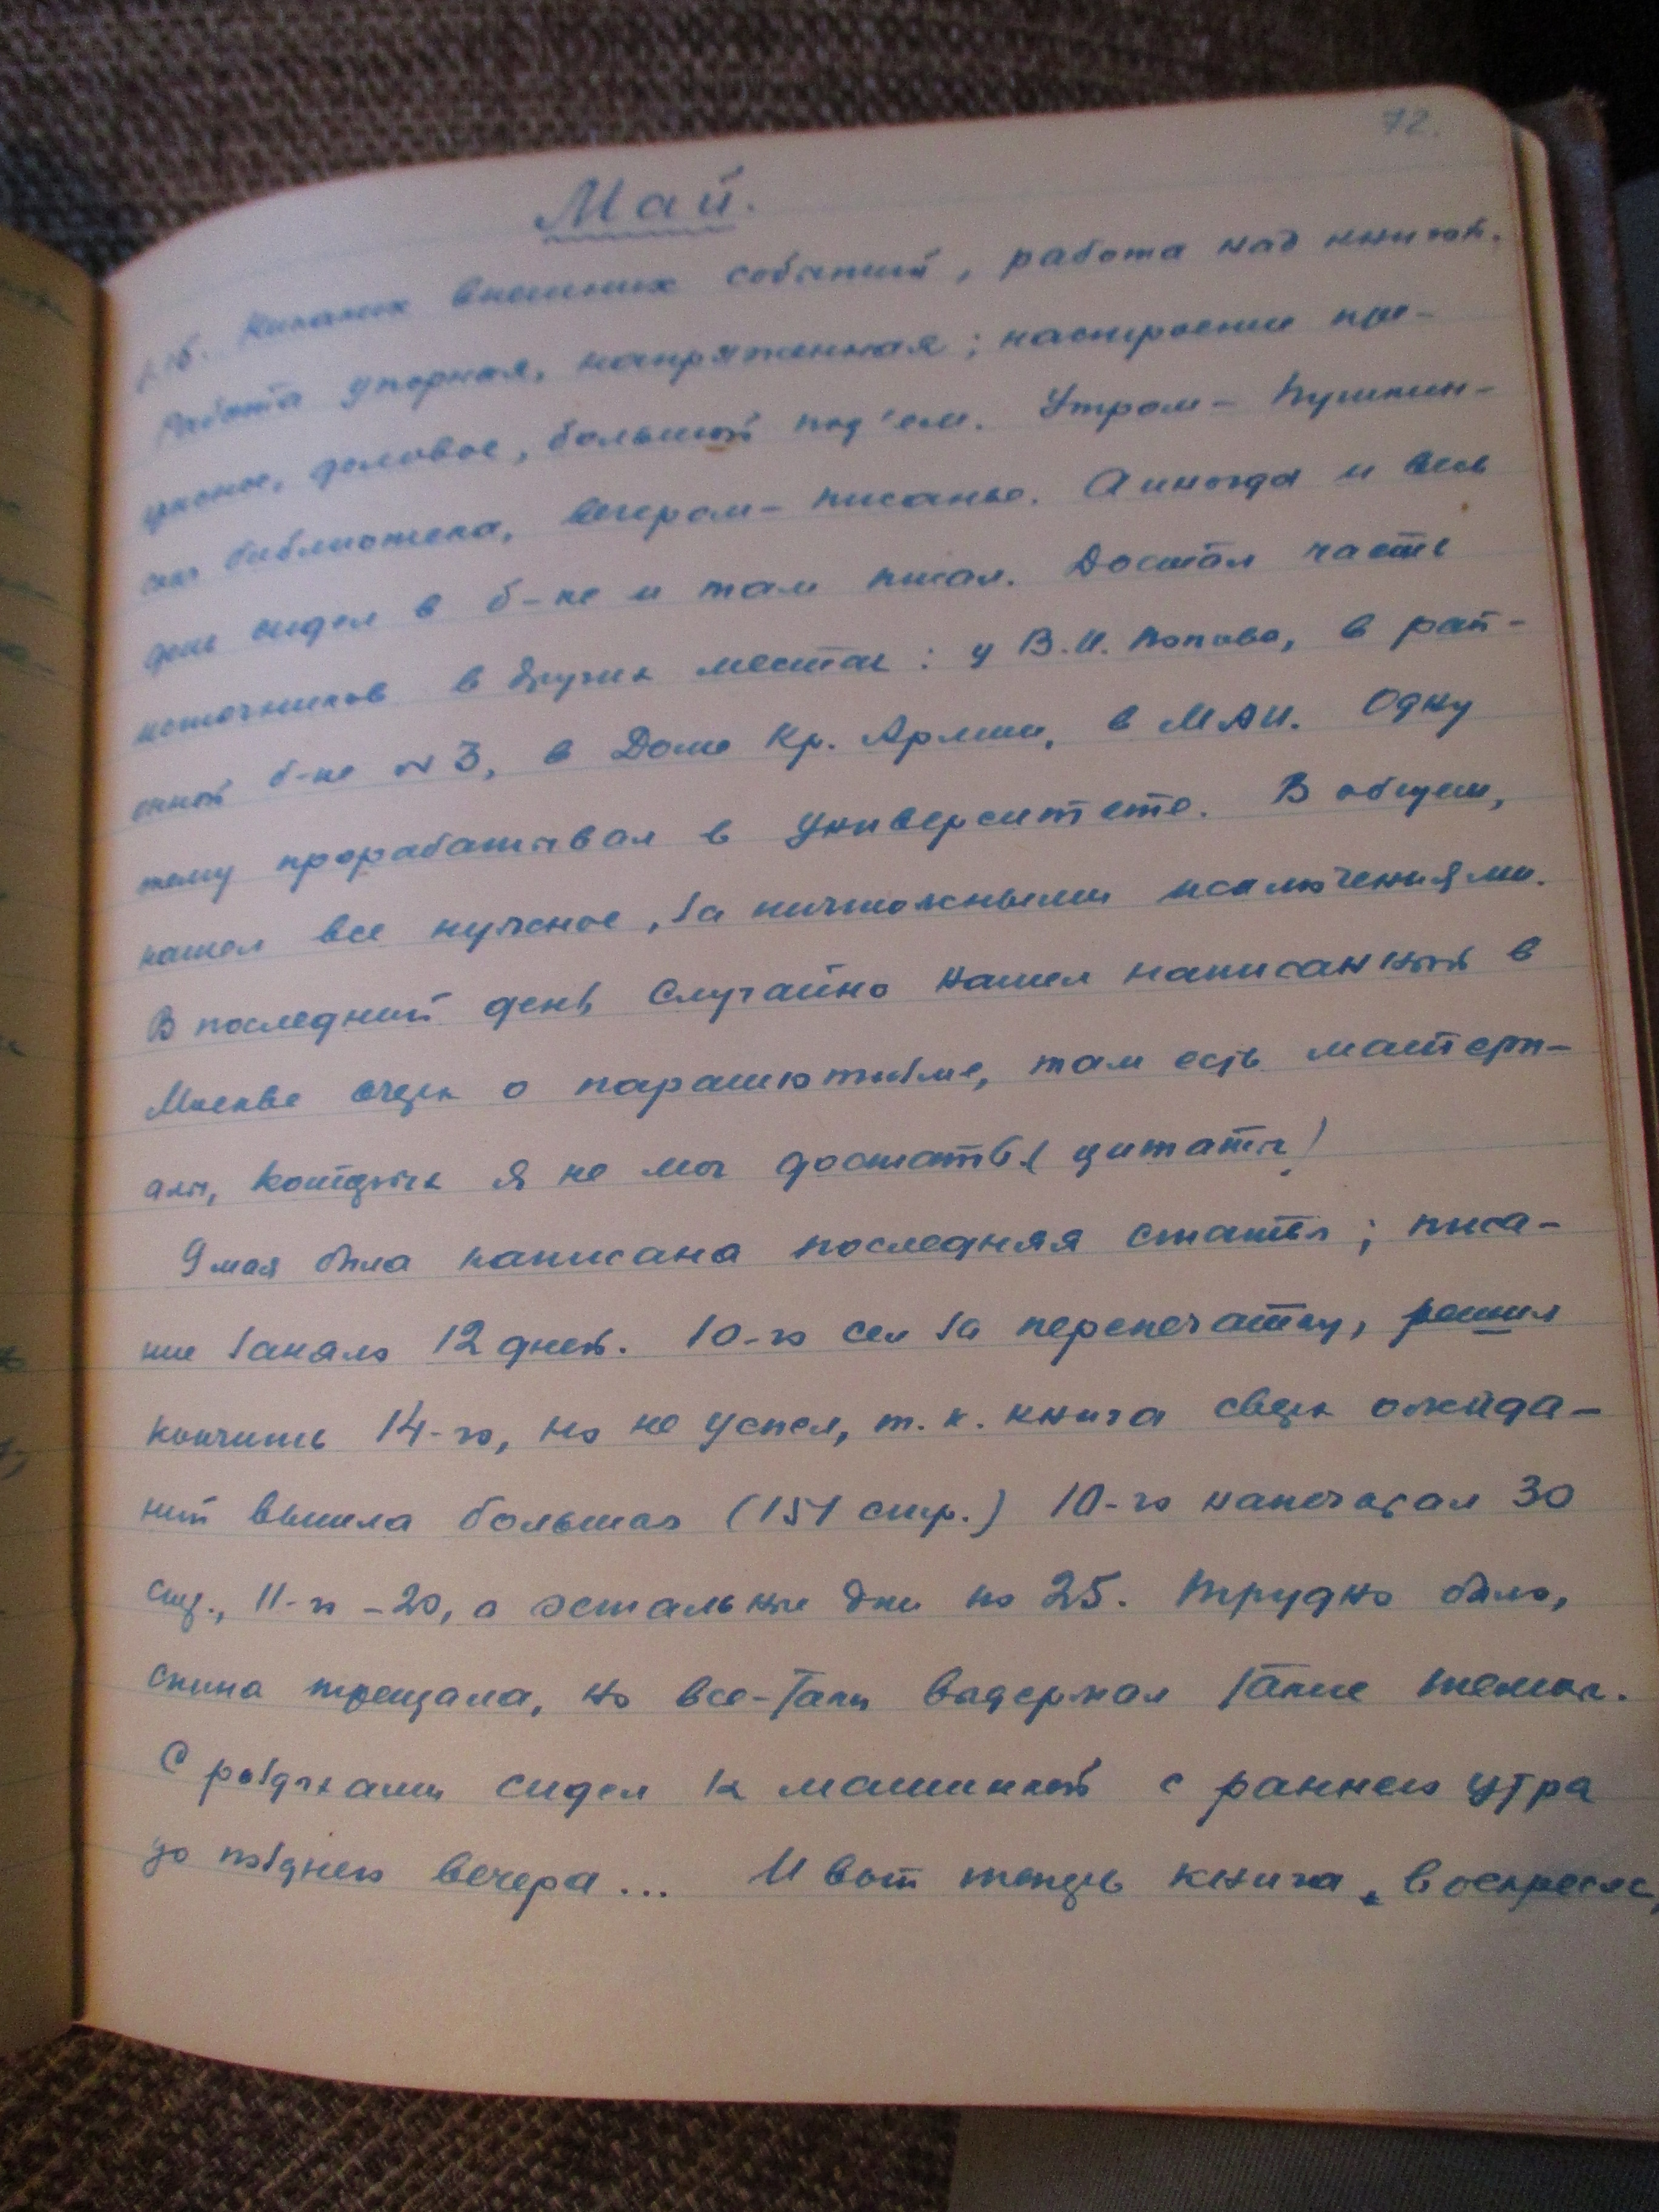 72.
Май.
Никаких внешних событий, работа над книгой.
Работа упорная, напряженная; настроение пре-
красное, деловое, большой под'ем. Утром - Пушкин-
ская библиотека, вечером - писанье. А иногда и весь
день сидел в б-ке и там писал. Достал часть
источников в других местах: у В.И. Попова, в рай-
онной б-ке № 3, в Доме Кр. Армии, в МАИ. Одну
тему прорабатывал в Университете. В общем,
нашел все нужное, за ничтожными исключениями.
В последний день случайно нашел написанный в
Москве очерк о парашютизме, там есть матери-
алы, которых я не мог достать (цитаты)
9 мая была написана последняя статья; писа-
ние заняло 12 дней. 10-го сел за перепечатку, решил
кончить 14-го, но не успел, т.к. книга сверх ожида-
ний вышла большая (151 стр.) 10-го напечатал 30
стр., 11-го - 20, а остальные дни по 25. Трудно было,
спина трещала, но все-таки выдержал такие темпы.
С роздыхами сидел за машинкой с раннего утра
до позднего вечера... И вот теперь книга